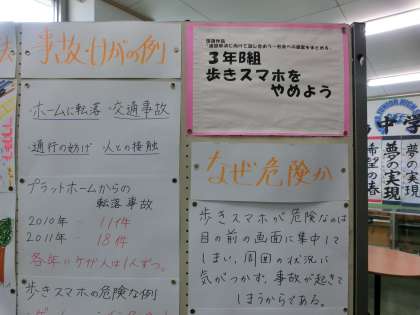 事故・けがの例
・ホームに転落・交通事故
・通行の妨げ・人との接触
プラットホームからの
転落事故
2010年 11件
2011年 18件
各年にケガ人は1人ずつ。
歩きスマホの危険な例
３年B組
歩きスマホを
やめよう
なぜ危険か
歩きスマホが危険なのは
目の前の画面に集中して
しまい、周囲の状況に
気がつかず、事故が起きて
しまうからである。
中学
希望の春
夢の実現
夢の実現